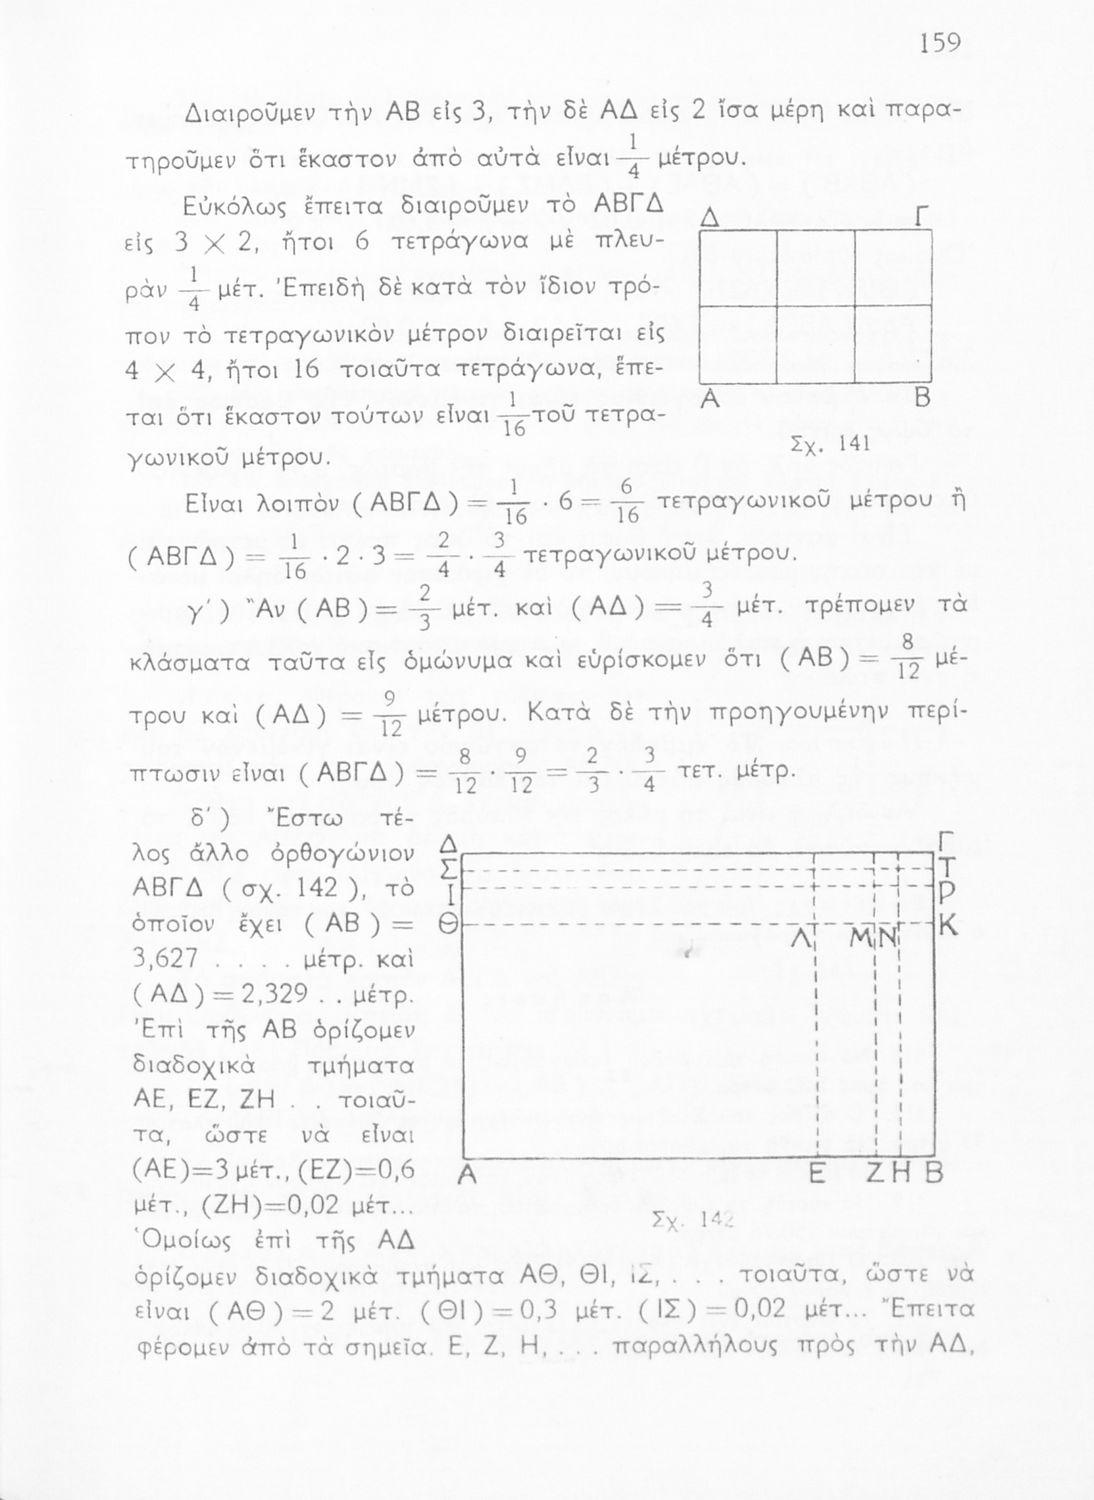 159
Διαιροῦμεν τὴν ΑΒ εἰς 3, τὴν δὲ ΑΔ εἰς 2 ἴσα μέρη καὶ παρα-
τηροῦμεν ὅτι ἕκαστον ἀπὸ αὐτὰ εἶναι 1/4 μέτρου.
Εὐκόλως ἔπειτα διαιροῦμεν τὸ ΑΒΓΔ
εἰς 3 × 2, ἤτοι 6 τετράγωνα μὲ πλευ-
ρὰν 1/4 μέτ. Ἐπειδὴ δὲ κατὰ τὸν ἴδιον τρό-
πον τὸ τετραγωνικὸν μέτρον διαιρεῖται εἰς
4 × 4, ἤτοι 16 τοιαῦτα τετράγωνα, ἕπε-
ται ὅτι ἕκαστον τούτων εἶναι 1/16 τοῦ τετρα-
γωνικοῦ μέτρου.
Δ Γ
Α Β
Σχ. 141
Εἶναι λοιπὸν ( ΑΒΓΔ ) = 1/16 · 6 = 6/16 τετραγωνικοῦ μέτρου ἢ
( ΑΒΓΔ ) = 1/16 · 2 · 3 = 2/4 · 3/4 τετραγωνικοῦ μέτρου.
γ' ) Ἂν ( ΑΒ ) = 2/3 μέτ. καὶ ( ΑΔ ) = 3/4 μέτ. τρέπομεν τὰ
κλάσματα ταῦτα εἰς ὁμώνυμα καὶ εὑρίσκομεν ὅτι ( ΑΒ ) = 8/12 μέ-
τρου καὶ ( ΑΔ ) = 9/12 μέτρου. Κατὰ δὲ τὴν προηγουμένην περί-
πτωσιν εἶναι ( ΑΒΓΔ ) = 8/12 · 9/12 = 2/3 · 3/4 τετ. μέτρ.
δ' ) Ἔστω τέ-
λος ἄλλο ὀρθογώνιον
ΑΒΓΔ ( σχ. 142 ), τὸ
ὁποῖον ἔχει ( ΑΒ ) =
3,627 . . . . μέτρ. καὶ
( ΑΔ ) = 2,329 . . μέτρ.
Ἐπὶ τῆς ΑΒ ὁρίζομεν
διαδοχικὰ τμήματα
ΑΕ, ΕΖ, ΖΗ . . τοιαῦ-
τα, ὥστε νὰ εἶναι
(ΑΕ)=3 μέτ., (ΕΖ)=0,6
μέτ., (ΖΗ)=0,02 μέτ...
Ὁμοίως ἐπὶ τῆς ΑΔ
Δ Γ
Σ Τ
Ι Ρ
Θ Κ
Λ Μ Ν
Α Ε Ζ Η Β
Σχ. 142
ὁρίζομεν διαδοχικὰ τμήματα ΑΘ, ΘΙ, ΙΣ, . . . τοιαῦτα, ὥστε νὰ
εἶναι ( ΑΘ ) = 2 μέτ. ( ΘΙ ) = 0,3 μέτ. ( ΙΣ ) = 0,02 μέτ... Ἔπειτα
φέρομεν ἀπὸ τὰ σημεῖα. Ε, Ζ, Η, . . . παραλλήλους πρὸς τὴν ΑΔ,